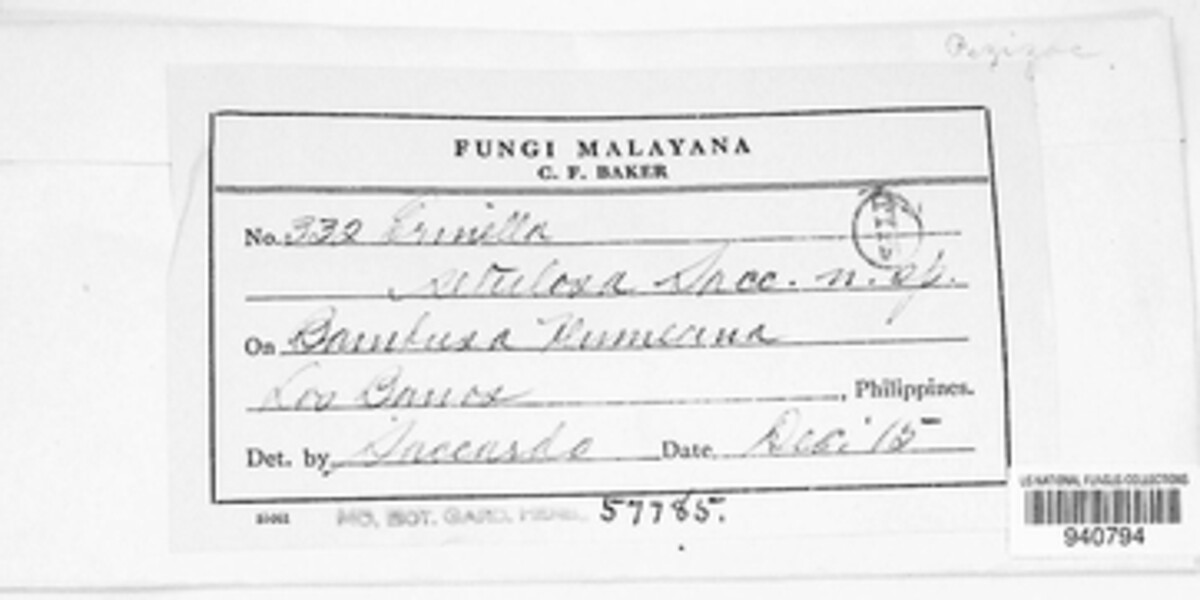 Pezizae
FUNGI MALAYANA
C. F. BAKER
No. 332 Erinella
setulosa Sacc. n. sp.
On Bambusa Blumeana
Los Banos, Philippines.
Det. by Saccardo Date Dec. '15
MO. BOT. GARD. HERB. 57785.
US NATIONAL FUNGUS COLLECTIONS
940794